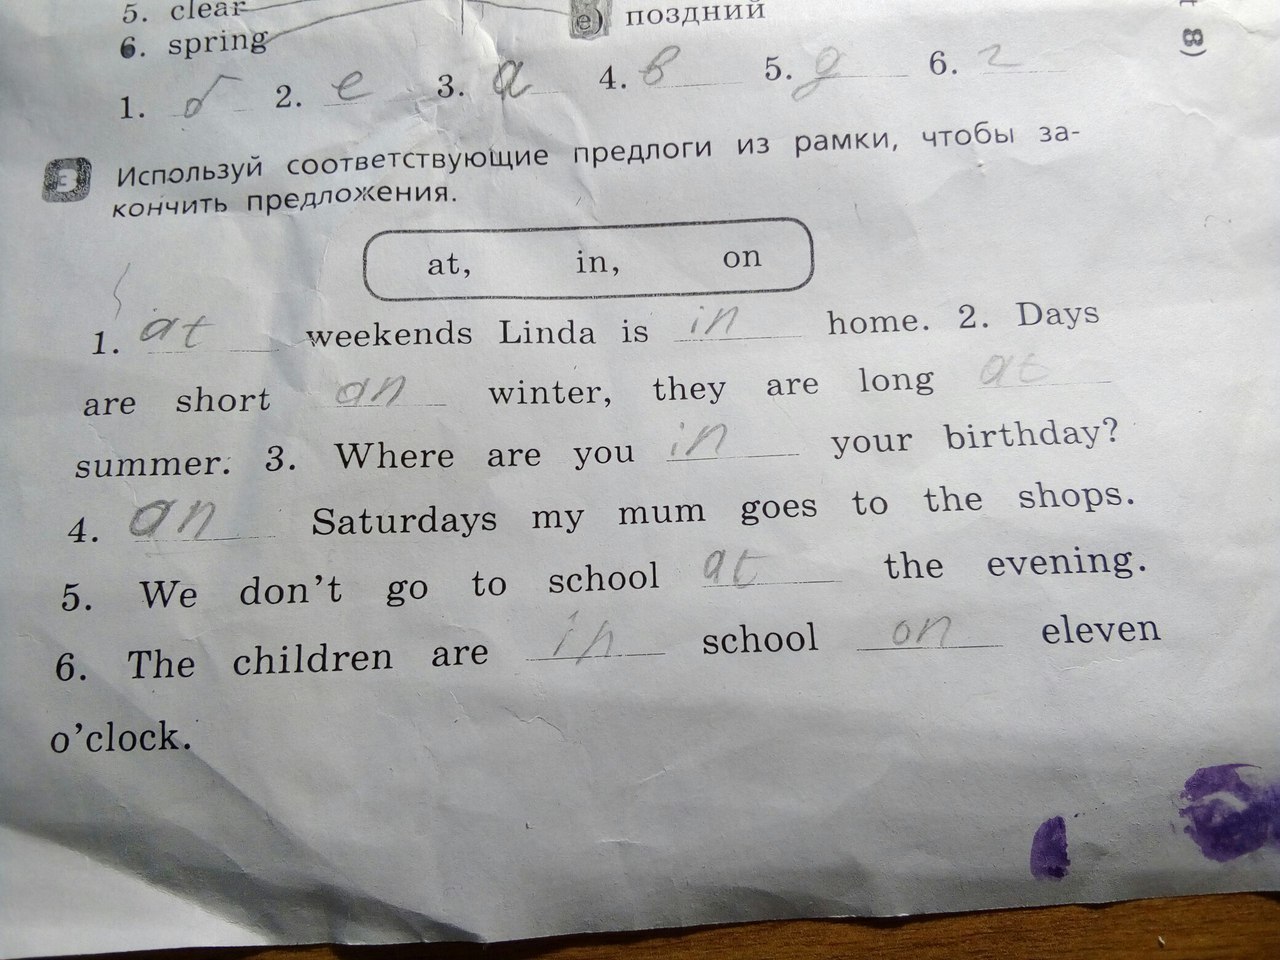 5. clear
е) поздний
6. spring
8)
1. б 2. е 3. а 4. в 5. д 6. г
3 Используй соответствующие предлоги из рамки, чтобы за-
кончить предложения.
at, in, on
1. at weekends Linda is in home. 2. Days
are short an winter, they are long at
summer. 3. Where are you in your birthday?
4. an Saturdays my mum goes to the shops.
5. We don't go to school at the evening.
6. The children are in school on eleven
o'clock.